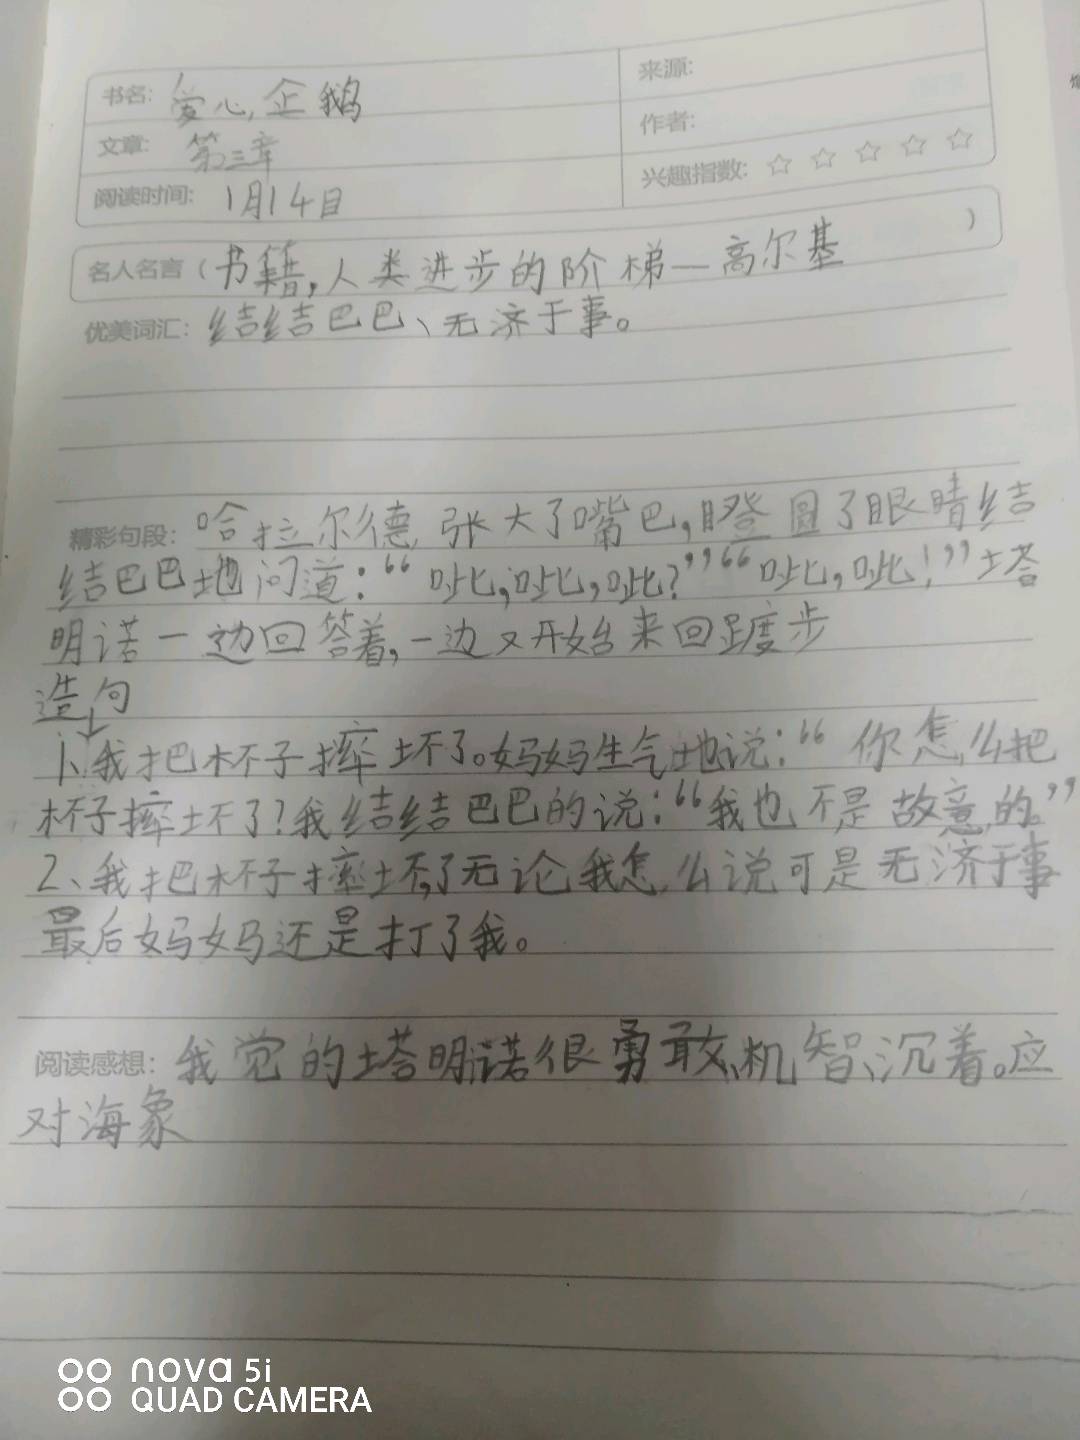 书名: 爱心企鹅
来源:
文章: 第三章
作者:
阅读时间: 1月14日
兴趣指数: ☆ ☆ ☆ ☆ ☆
名人名言（书籍,人类进步的阶梯—高尔基）
优美词汇: 结结巴巴、无济于事。
精彩句段: 哈拉尔德 张大了嘴巴,瞪圆了眼睛结
结巴巴地问道:“呲,呲,呲?”“呲,呲!”塔
明诺一边回答着,一边又开始来回踱步
造句
1、我把杯子摔坏了。妈妈生气地说:“你怎么把
杯子摔坏了?我结结巴巴的说:“我也不是故意的。”
2、我把杯子摔坏了无论我怎么说可是无济于事
最后妈妈还是打了我。
阅读感想: 我觉的塔明诺很勇敢、机智、沉着。应
对海象
nova 5i
QUAD CAMERA